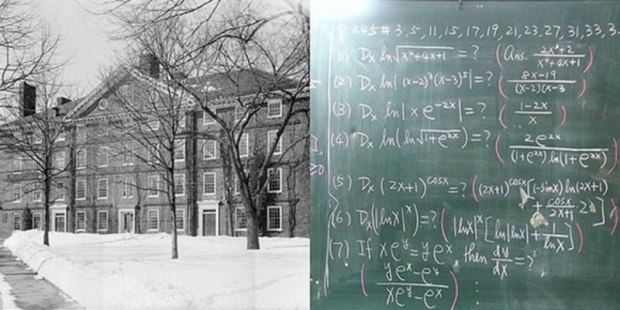 P.245 # 3, 5, 11, 15, 17, 19, 21, 23, 27, 31, 33, 3
(1) Dx ln√(x⁴+4x+1) = ? (Ans. (2x³+2)/(x⁴+4x+1))
(2) Dx ln|(x-2)³(x-3)⁵| = ? ((8x-19)/((x-2)(x-3))
(3) Dx ln|x e^(-2x)| = ? ((1-2x)/x)
(4) Dx ln(ln√(1+e^(2x))) = ? (2e^(2x)/((1+e^(2x))ln(1+e^(2x))))
(5) Dx (2x+1)^(cosx) = ? ((2x+1)^(cosx)[(-sinx)ln(2x+1)
+ cosx/(2x+1)·2])
(6) Dx(|lnx|^x) = ? (|lnx|^x[ln|lnx| + 1/lnx])
(7) If xe^y = ye^x, then dy/dx = ?
((ye^x-e^y)/(xe^y-e^x))